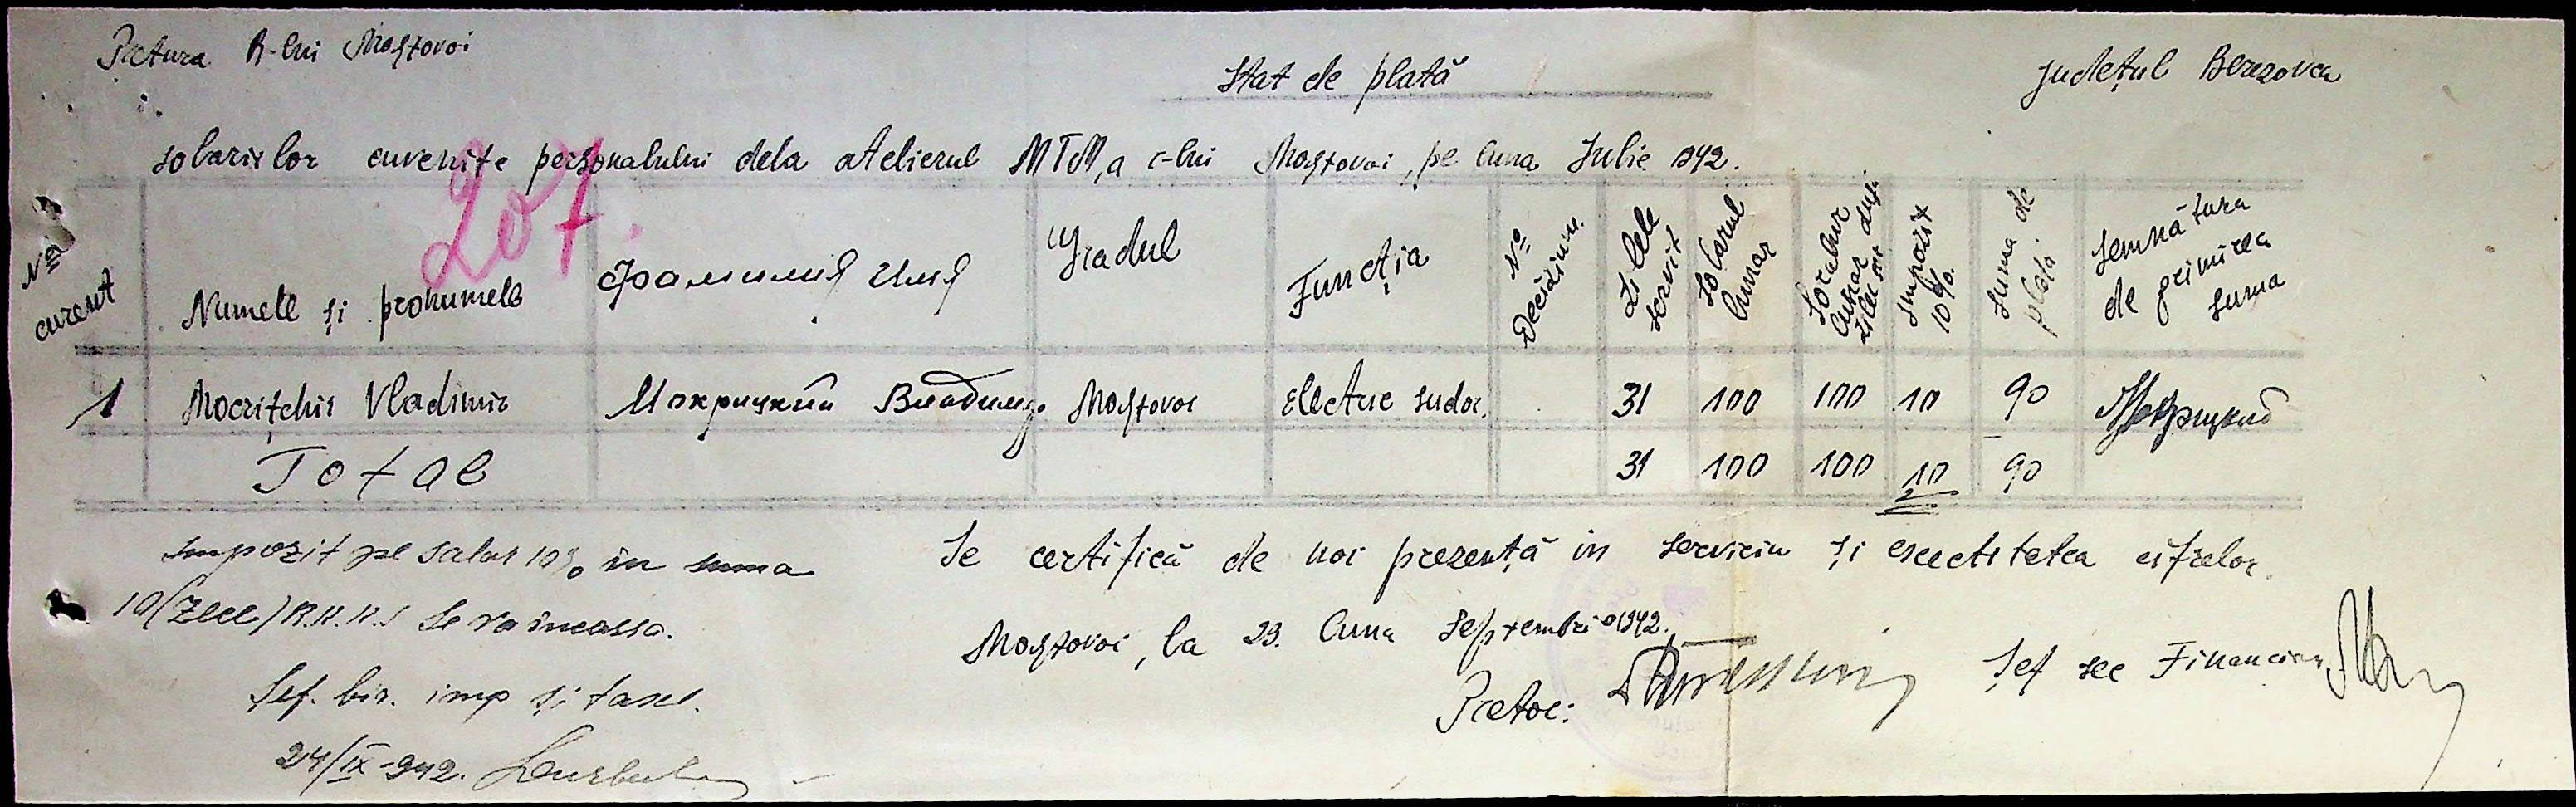 Pretura R-lui Moștovoi
Stat de plată
Județul Berezovca
solariilor cuvenite personalului dela atelierul MTM, a r-lui Moștovoi, pe luna Iulie 1942.
207.
№ curent
Numele și pronumele
Фамилия Имя
Gradul
Funcția
№ Decidiuni
Zilele servit
Solarul lunar
Impozit 10%.
Suma de plată
Semnătura de primirea suma
1 Mocrițchii Vladimir Мокрицкий Владимир Moștovoi Electric sudor. 31 100 100 10 90 Мокрицкий
Total 31 100 100 10 90
Impozit pe salar 10% în suma
10 (zece) R.K.K.S se va incassa.
Șef. bir. imp și taxe.
24/IX-942.
Se certifică de noi prezență in serviciu și exectitatea cifrelor.
Moștovoi, la 23. luna Septembrie 1942.
Pretor:
Șef sec Financiar